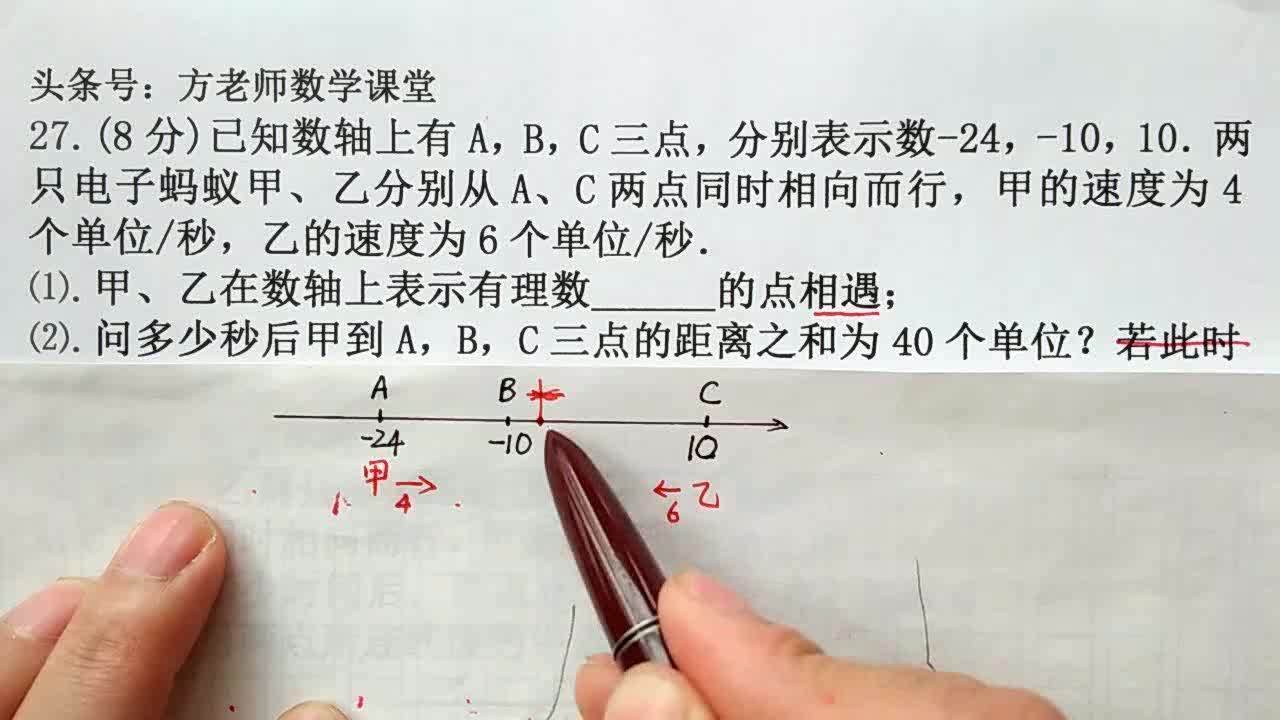 头条号：方老师数学课堂
27.(8分)已知数轴上有A，B，C三点，分别表示数-24，-10，10．两
只电子蚂蚁甲、乙分别从A、C两点同时相向而行，甲的速度为4
个单位/秒，乙的速度为6个单位/秒．
⑴.甲、乙在数轴上表示有理数______的点相遇；
⑵.问多少秒后甲到A，B，C三点的距离之和为40个单位？若此时
A B C
-24 -10 10
甲 乙
4 6